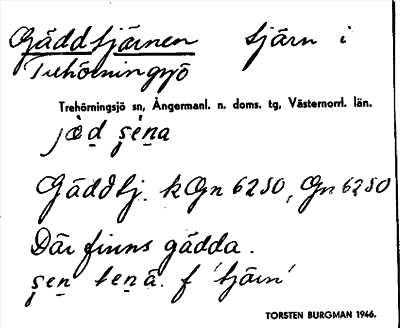 Gäddtjärnen tjärn i
Trehörningsjö
Trehörningsjö sn, Ångermanl. n. doms. tg, Västernorrl. län.
Gäddtj. k Gn 6250, Gn 6250
Där finns gädda.
f 'tjärn'
TORSTEN BURGMAN 1946.